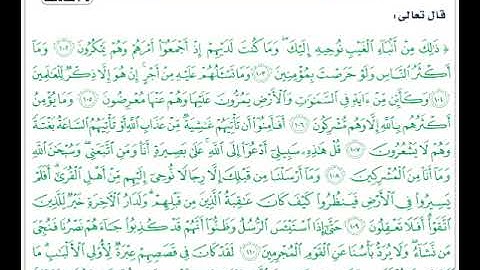 قال تعالى :
﴿ ذَٰلِكَ مِنْ أَنۢبَآءِ ٱلْغَيْبِ نُوحِيهِ إِلَيْكَ ۖ وَمَا كُنتَ لَدَيْهِمْ إِذْ أَجْمَعُوٓا۟ أَمْرَهُمْ وَهُمْ يَمْكُرُونَ ١٠٢ وَمَآ
أَكْثَرُ ٱلنَّاسِ وَلَوْ حَرَصْتَ بِمُؤْمِنِينَ ١٠٣ وَمَا تَسْـَٔلُهُمْ عَلَيْهِ مِنْ أَجْرٍ ۚ إِنْ هُوَ إِلَّا ذِكْرٌ لِّلْعَـٰلَمِينَ
١٠٤ وَكَأَيِّن مِّنْ ءَايَةٍ فِى ٱلسَّمَـٰوَٰتِ وَٱلْأَرْضِ يَمُرُّونَ عَلَيْهَا وَهُمْ عَنْهَا مُعْرِضُونَ ١٠٥ وَمَا يُؤْمِنُ
أَكْثَرُهُم بِٱللَّهِ إِلَّا وَهُم مُّشْرِكُونَ ١٠٦ أَفَأَمِنُوٓا۟ أَن تَأْتِيَهُمْ غَـٰشِيَةٌ مِّنْ عَذَابِ ٱللَّهِ أَوْ تَأْتِيَهُمُ ٱلسَّاعَةُ بَغْتَةً
وَهُمْ لَا يَشْعُرُونَ ١٠٧ قُلْ هَـٰذِهِۦ سَبِيلِىٓ أَدْعُوٓا۟ إِلَى ٱللَّهِ ۚ عَلَىٰ بَصِيرَةٍ أَنَا۠ وَمَنِ ٱتَّبَعَنِى ۖ وَسُبْحَـٰنَ ٱللَّهِ
وَمَآ أَنَا۠ مِنَ ٱلْمُشْرِكِينَ ١٠٨ وَمَآ أَرْسَلْنَا مِن قَبْلِكَ إِلَّا رِجَالًا نُّوحِىٓ إِلَيْهِم مِّنْ أَهْلِ ٱلْقُرَىٰٓ ۗ أَفَلَمْ
يَسِيرُوا۟ فِى ٱلْأَرْضِ فَيَنظُرُوا۟ كَيْفَ كَانَ عَـٰقِبَةُ ٱلَّذِينَ مِن قَبْلِهِمْ ۗ وَلَدَارُ ٱلْـَٔاخِرَةِ خَيْرٌ لِّلَّذِينَ
ٱتَّقَوْا۟ ۗ أَفَلَا تَعْقِلُونَ ١٠٩ حَتَّىٰٓ إِذَا ٱسْتَيْـَٔسَ ٱلرُّسُلُ وَظَنُّوٓا۟ أَنَّهُمْ قَدْ كُذِبُوا۟ جَآءَهُمْ نَصْرُنَا فَنُجِّىَ
مَن نَّشَآءُ ۖ وَلَا يُرَدُّ بَأْسُنَا عَنِ ٱلْقَوْمِ ٱلْمُجْرِمِينَ ١١٠ لَقَدْ كَانَ فِى قَصَصِهِمْ عِبْرَةٌ لِّأُو۟لِى ٱلْأَلْبَـٰبِ ۗ مَا